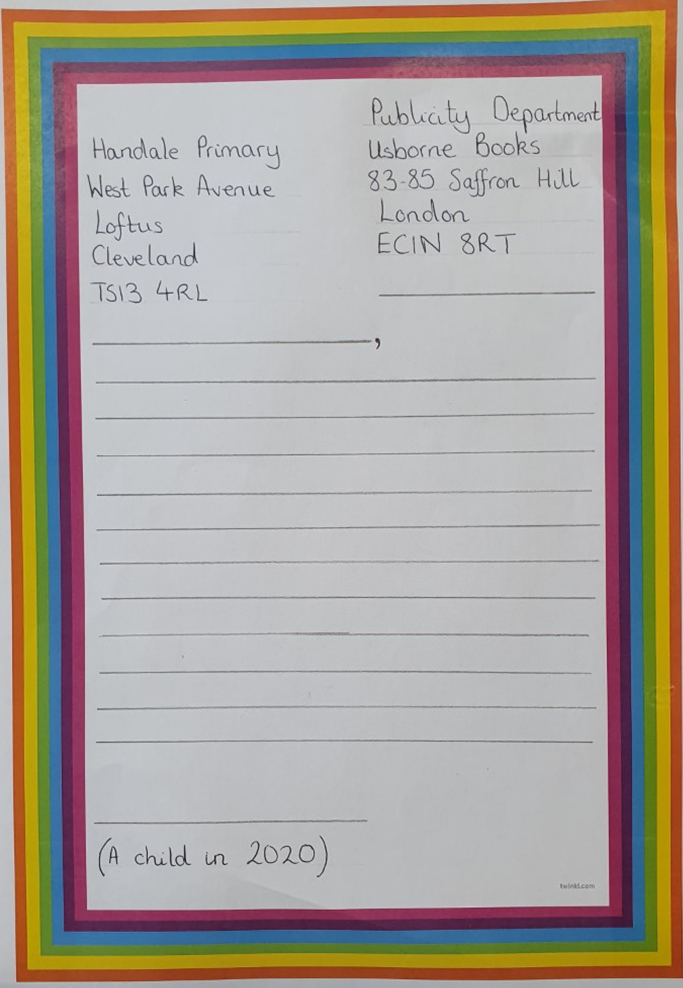 Handale Primary
West Park Avenue
Loftus
Cleveland
TS13 4RL
Publicity Department
Usborne Books
83-85 Saffron Hill
London
EC1N 8RT
,
(A child in 2020)
twinkl.com